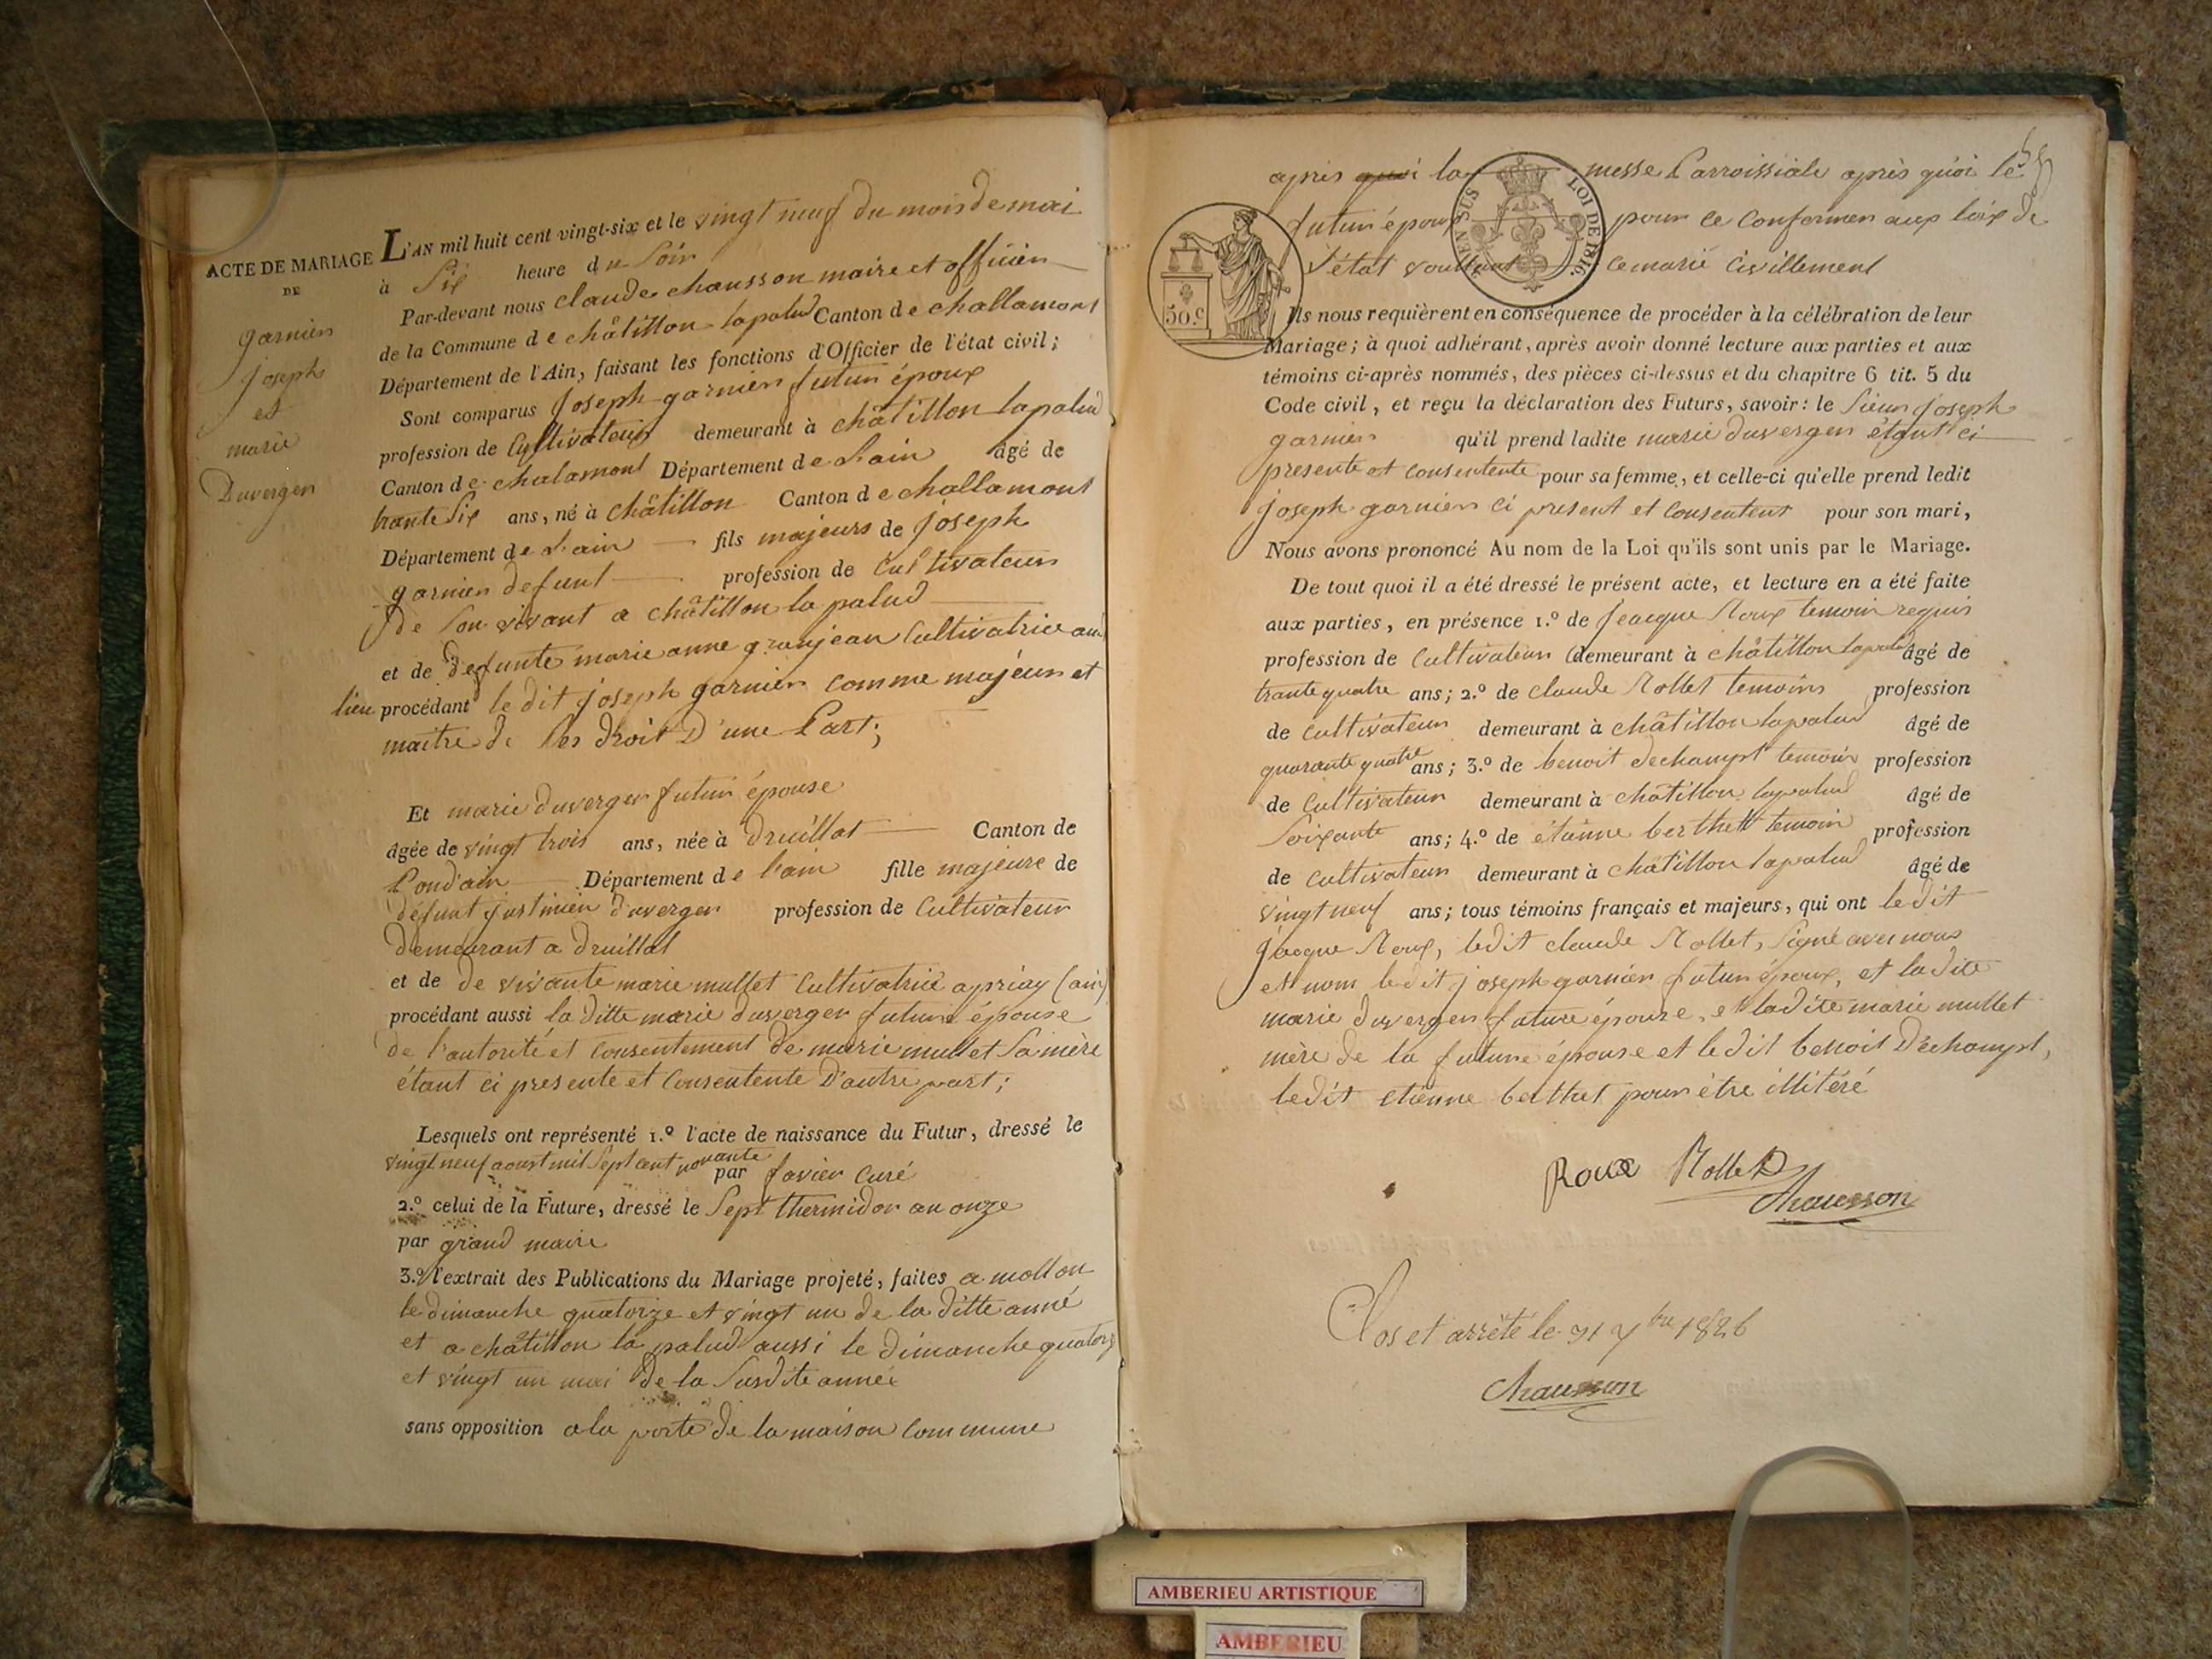 ACTE DE MARIAGE
DE
garnier
joseph
et
marie
Duverger
L'AN mil huit cent vingt-six et le vingt neuf du mois de mai
à six heure du soir
Par-devant nous claude chausson maire et officier
de la Commune de châtillon lapalud Canton de challamont
Département de l'Ain, faisant les fonctions d'Officier de l'état civil;
Sont comparus joseph garnier futur époux
profession de Cultivateur demeurant à châtillon lapalud
Canton de chalamont Département de l'ain âgé de
trante six ans, né à châtillon Canton de challamont
Département de l'ain fils majeurs de joseph
garnier defunt profession de Cultivateur
de son vivant a châtillon la palud
et de defunte marie anne granjean Cultivatrice au
lieu procédant le dit joseph garnier comme majeur et
maitre de ses droit D'une Part;
Et marie duverger futur épouse
âgée de vingt trois ans, née à druillat Canton de
Pondain Département de l'ain fille majeure de
défunt justinien duverger profession de Cultivateur
demeurant a druillat
et de de vivante marie mullet Cultivatrice a priay (ain)
procédant aussi la ditte marie duverger future épouse
de l'autorité et Consentement de marie mullet sa mère
étant ci presente et Consentente D'autre part;
Lesquels ont représenté 1.º l'acte de naissance du Futur, dressé le
vingt neuf aoust mil sept cent nonante par favier Curé
2.º celui de la Future, dressé le Sept thermidor an onze
par grand maire
3.º l'extrait des Publications du Mariage projeté, faites a mollon
le dimanche quatorze et vingt un de la ditte anné
et a châtillon la palud aussi le dimanche quatorz
et vingt un mai de la susdite année
sans opposition a la porte de la maison Commune
après quoi la messe Parroissiale après quoi le
futur époux pour ce Conformer aux loix de
l'état voullant ce marié Civillement
MEN SUS
LOI DE 1816.
50.c
Ils nous requièrent en conséquence de procéder à la célébration de leur
Mariage; à quoi adhérant, après avoir donné lecture aux parties et aux
témoins ci-après nommés, des pièces ci-dessus et du chapitre 6 tit. 5 du
Code civil, et reçu la déclaration des Futurs, savoir: le sieur joseph
garnier qu'il prend ladite marie duverger étant ci
presente et Consentente pour sa femme, et celle-ci qu'elle prend ledit
joseph garnier ci present et Consentent pour son mari,
Nous avons prononcé Au nom de la Loi qu'ils sont unis par le Mariage.
De tout quoi il a été dressé le présent acte, et lecture en a été faite
aux parties, en présence 1.º de jeacque Roux temoin requis
profession de Cultivateur demeurant à châtillon lapalud âgé de
trante quatre ans; 2.º de claude Rollet temoins profession
de Cultivateur demeurant à châtillon lapalud âgé de
quarante quatre ans; 3.º de benoit dechampt temoin profession
de Cultivateur demeurant à châtillon lapalud âgé de
Soixante ans; 4.º de étienne berthet temoin profession
de Cultivateur demeurant à châtillon lapalud âgé de
vingt neuf ans; tous témoins français et majeurs, qui ont le dit
jacque Roux, ledit claude Rollet, signé avec nous
et nom le dit joseph garnier futur époux, et la dite
marie duverger future épouse, et ladite marie mullet
mère de la future épouse et le dit benoit Déchampt,
ledit etienne berthet pour être illitéré
Roux Rollet
Chausson
Clos et arrêté le 31 xbre 1826
Chausson
AMBERIEU ARTISTIQUE
AMBERIEU